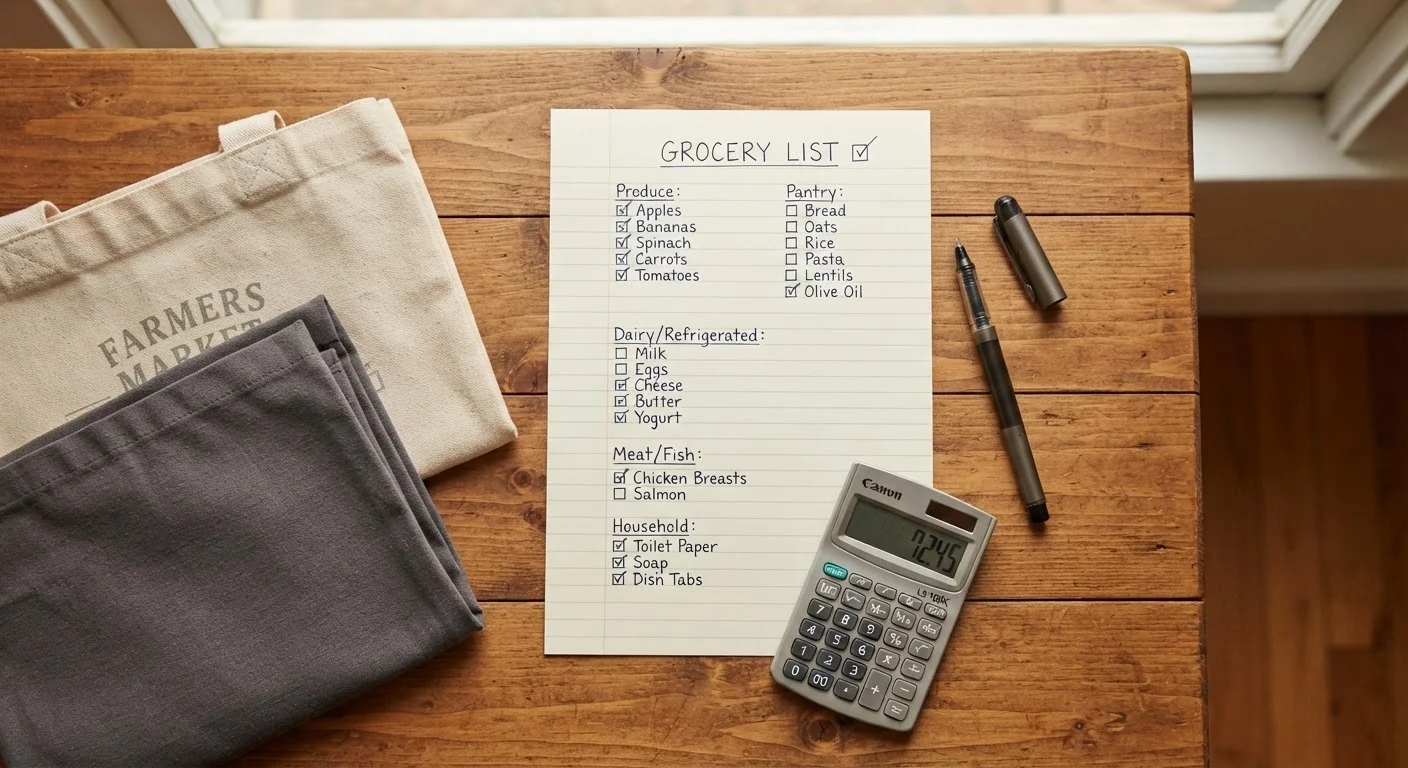 FARMERS
MARKET
GROCERY LIST ☑
Produce:
☑ Apples
☑ Bananas
☑ Spinach
☑ Carrots
☑ Tomatoes
Pantry:
☐ Bread
☐ Oats
☐ Rice
☐ Pasta
☐ Lentils
☑ Olive Oil
Dairy/Refrigerated:
☐ Milk
☐ Eggs
☑ Cheese
☑ Butter
☑ Yogurt
Meat/Fish:
☑ Chicken Breasts
☐ Salmon
Household:
☑ Toilet Paper
☑ Soap
☑ Dish Tabs
Canon
7 8 9
5 6
1 2 3
0 00 .